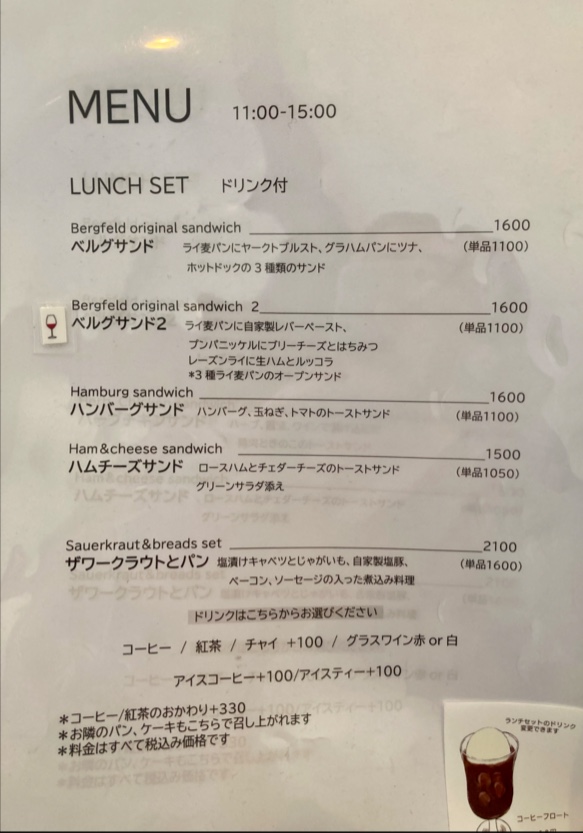 MENU 11:00-15:00
LUNCH SET ドリンク付
Bergfeld original sandwich 1600
ベルグサンド ライ麦パンにヤークトブルスト、グラハムパンにツナ、 (単品1100)
ホットドックの 3 種類のサンド
Bergfeld original sandwich 2 1600
ベルグサンド2 ライ麦パンに自家製レバーペースト、 (単品1100)
プンパニッケルにブリーチーズとはちみつ
レーズンライに生ハムとルッコラ
*3 種ライ麦パンのオープンサンド
Hamburg sandwich 1600
ハンバーグサンド ハンバーグ、玉ねぎ、トマトのトーストサンド (単品1100)
Ham&cheese sandwich 1500
ハムチーズサンド ロースハムとチェダーチーズのトーストサンド (単品1050)
グリーンサラダ添え
Sauerkraut&breads set 2100
ザワークラウトとパン 塩漬けキャベツとじゃがいも、自家製塩豚、 (単品1600)
ベーコン、ソーセージの入った煮込み料理
ドリンクはこちらからお選びください
コーヒー / 紅茶 / チャイ +100 / グラスワイン赤 or 白
アイスコーヒー+100/アイスティー+100
＊コーヒー/紅茶のおかわり+330
＊お隣のパン、ケーキもこちらで召し上がれます
＊料金はすべて税込み価格です
ランチセットのドリンク
変更できます
コーヒーフロート